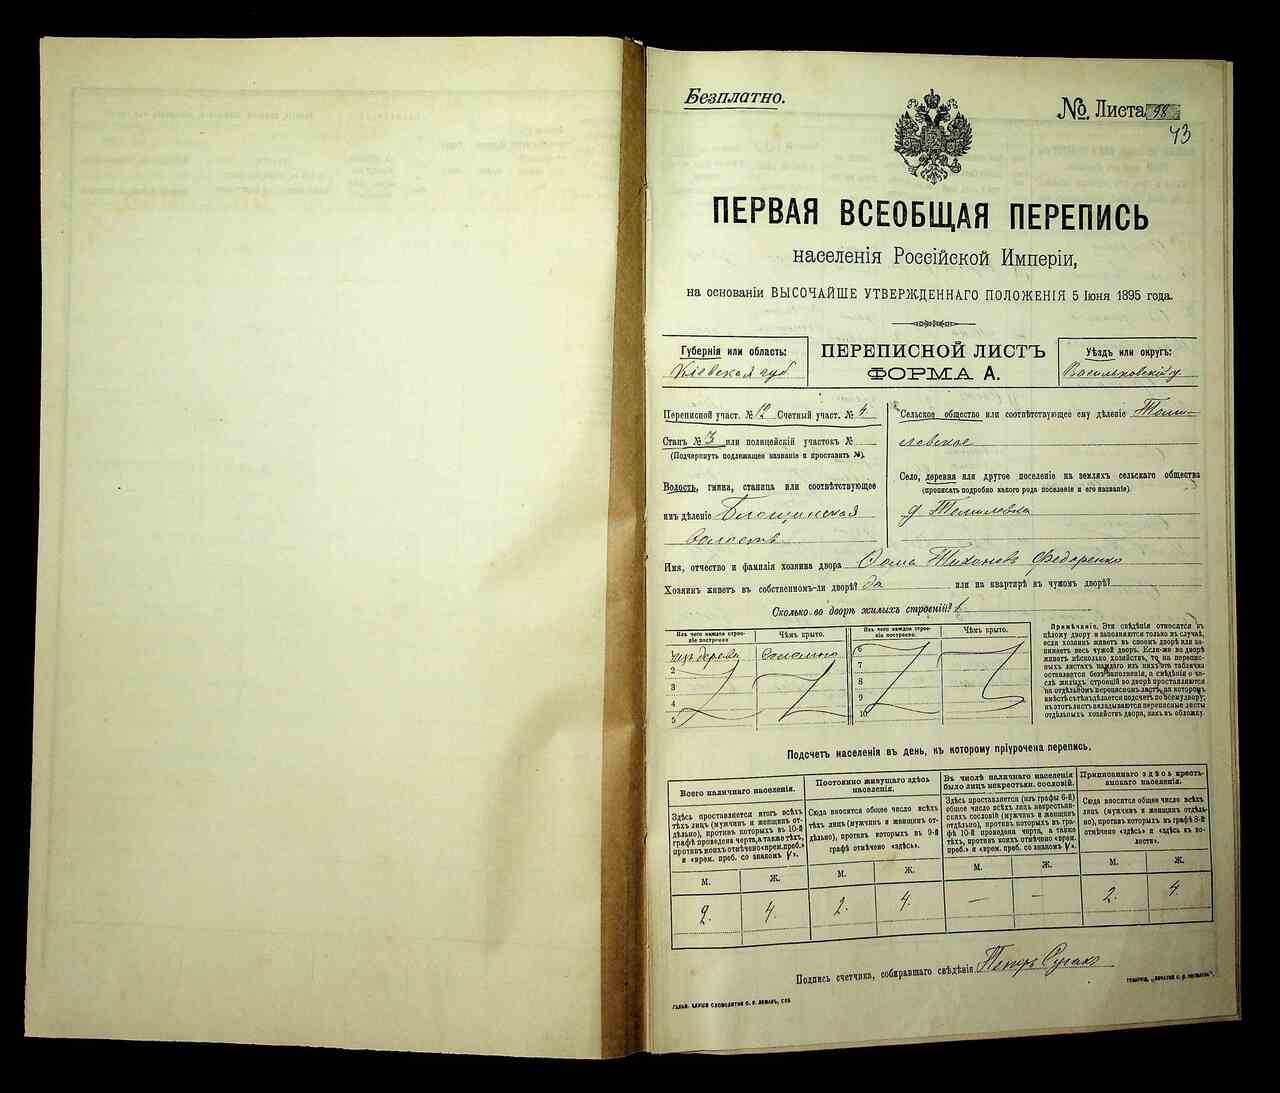 Безплатно.
№ Листа 98
43
ПЕРВАЯ ВСЕОБЩАЯ ПЕРЕПИСЬ
населенія Россійской Имперіи,
на основаніи ВЫСОЧАЙШЕ УТВЕРЖДЕННАГО ПОЛОЖЕНІЯ 5 Іюня 1895 года.
Губернія или область:
Кіевская губ
ПЕРЕПИСНОЙ ЛИСТЪ
ФОРМА А.
Уѣздъ или округъ:
Васильковскій у
Переписной участ. № 12 Счетный участ. № 4.
Станъ № 3 или полицейскій участокъ №
(Подчеркнуть подлежащее названіе и проставить №).
Волость, гмина, станица или соотвѣтствующее
имъ дѣленіе Блощинская
волость
Сельское общество или соотвѣтствующее ему дѣленіе Томи-
ловское
Село, деревня или другое поселеніе на земляхъ сельскаго общества
(прописать подробно какого рода поселеніе и его названіе).
д Томиловка
Имя, отчество и фамилія хозяина двора Фома Тихоновъ Федоренко
Хозяинъ живетъ въ собственномъ-ли дворѣ? да или на квартирѣ въ чужомъ дворѣ?
Сколько во дворѣ жилыхъ строеній? 1
Изъ чего каждое строе-
ніе построено
Чѣмъ крыто.
Изъ чего каждое строе-
ніе построено.
Чѣмъ крыто.
изъ дерева Соломою
2
3
4
5
6
7
8
9
10
Примѣчаніе. Эти свѣдѣнія относятся къ
цѣлому двору и заполняются только въ случаѣ,
если хозяинъ живетъ въ своемъ дворѣ или за-
нимаетъ весь чужой дворъ. Если-же во дворѣ
живетъ нѣсколько хозяйствъ, то на перепис-
ныхъ листахъ каждаго изъ нихъ эта табличка
оставляется безъ заполненія, а свѣдѣнія о чи-
слѣ жилыхъ строеній во дворѣ проставляются
на отдѣльномъ переписномъ листѣ, на которомъ
вмѣстѣ съ тѣмъ дѣлается подсчетъ по всему двору;
въ этотъ листъ вкладываются переписные листы
отдѣльныхъ хозяйствъ двора, какъ въ обложку.
Подсчетъ населенія въ день, къ которому пріурочена перепись.
Всего наличнаго населенія.
Здѣсь проставляется итогъ всѣхъ
тѣхъ лицъ (мужчинъ и женщинъ от-
дѣльно), противъ которыхъ въ 10-й
графѣ проведена черта, а также тѣхъ,
противъ коихъ отмѣчено «врем. преб.»
и «врем. преб. со знакомъ V».
Постоянно живущаго здѣсь
населенія.
Сюда вносится общее число всѣхъ
тѣхъ лицъ (мужчинъ и женщинъ от-
дѣльно), противъ которыхъ въ 9-й
графѣ отмѣчено «здѣсь».
Въ числѣ наличнаго населенія
было лицъ некрестьян. сословій.
Здѣсь проставляется (изъ графы 6-й)
общее число всѣхъ лицъ некрестьян-
скихъ сословій (мужчинъ и женщинъ
отдѣльно), противъ которыхъ въ гра-
фѣ 10-й проведена черта, а также
тѣхъ, противъ коихъ отмѣчено «врем.
преб.» и «врем. преб. со знакомъ V».
Приписаннаго здѣсь кресть-
янскаго населенія.
Сюда вносится общее число всѣхъ
лицъ (мужчинъ и женщинъ отдѣль-
но), противъ которыхъ въ графѣ 8-й
отмѣчено «здѣсь» и «здѣсь къ во-
лости».
М. Ж. М. Ж. М. Ж. М. Ж.
2. 4. 2. 4. — — 2. 4.
Подпись счетчика, собиравшаго свѣдѣнія